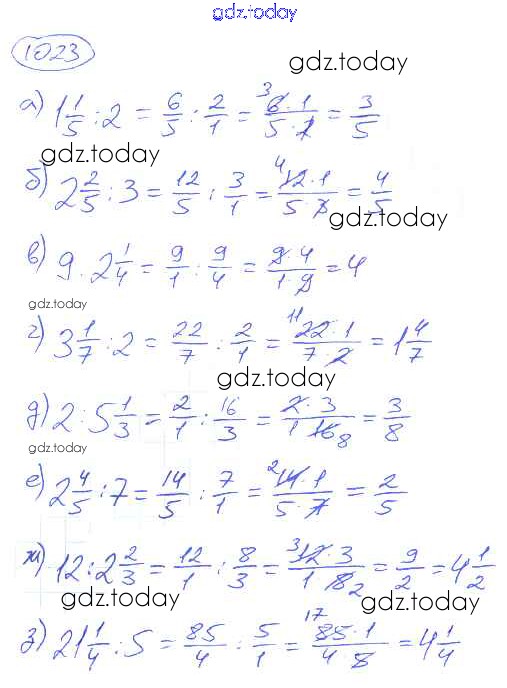 gdz.today
1023
gdz.today
а) 1 1/5 : 2 = 6/5 : 2/1 = 6·1/5·2 3 = 3/5
gdz.today
б) 2 2/5 : 3 = 12/5 : 3/1 = 12·1/5·3 4 = 4/5
gdz.today
в) 9 : 2 1/4 = 9/1 : 9/4 = 9·4/1·9 = 4
gdz.today
г) 3 1/7 : 2 = 22/7 : 2/1 = 22·1/7·2 11 = 1 4/7
gdz.today
д) 2 : 5 1/3 = 2/1 : 16/3 = 2·3/1 16 8 = 3/8
gdz.today
е) 2 4/5 : 7 = 14/5 : 7/1 = 14·1/5·7 2 = 2/5
ж) 12 : 2 2/3 = 12/1 : 8/3 = 12·3/1 8 3 2 = 9/2 = 4 1/2
gdz.today gdz.today
з) 21 1/4 : 5 = 85/4 : 5/1 = 85·1/4·5 17 = 4 1/4